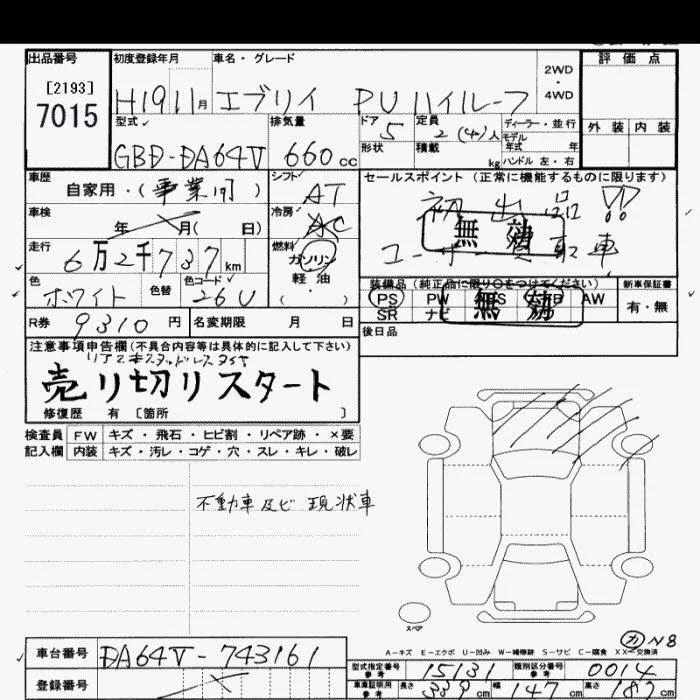 出品番号 初度登録年月 車名・グレード 2WD・4WD 評価点
[2193]
7015
H19 11月 エブリイ PUハイルーフ
型式 排気量 ドア 定員 ディーラー・並行 外装 内装
GBD-DA64V 660cc 5 2(4)人 モデル年式 年
形状 積載 kg ハンドル 左・右
車歴 シフト セールスポイント (正常に機能するものに限ります)
自家用・(事業用) AT 初出品!!
車検 年 月( 日) 冷房 AC 無効
走行 6万2千737km 燃料 ガソリン ユーザー買取車
色 色替 色コード 軽油
ホワイト 26U ( )
装備品 (純正品に限り○をつけてください) 新車保証書
PS PW 無効 AW 有・無
SR ナビ
R券 9310円 名変期限 月 日 後日品
注意事項申告欄(不具合内容等は具体的に記入して下さい)
売り切りスタート
修復歴 有 [箇所 ]
検査員 FW キズ・飛石・ヒビ割・リペア跡・×要
記入欄 内装 キズ・汚レ・コゲ・穴・スレ・キレ・破レ
不動車及ビ現状車
スペア
A-キズ E-エクボ U-凹み W-補修跡 S-サビ C-腐食 XX-交換済
カ N8
車台番号 DA64V-743161
型式指定番号 参考 15131 類別区分番号 参考 0014
登録番号
車庫証明用 参考 長さ 339cm 幅 147cm 高さ 187cm